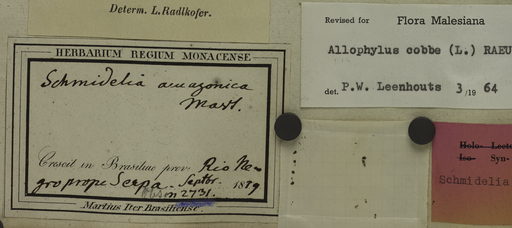 Determ. L. Radlkofer.
HERBARIUM REGIUM MONACENSE
Schmidelia amazonica
Mart.
Crescit in Brasiliae prov. Rio Ne-
gro prope Serpa. Septbr. 1819
Obs. n 2731.
Martius Iter Brasiliense.
Revised for Flora Malesiana
Allophylus cobbe (L.) RAEU
det. P.W. Leenhouts 3/1964
Holo- Lecto
Iso- Syn-
Schmidelia